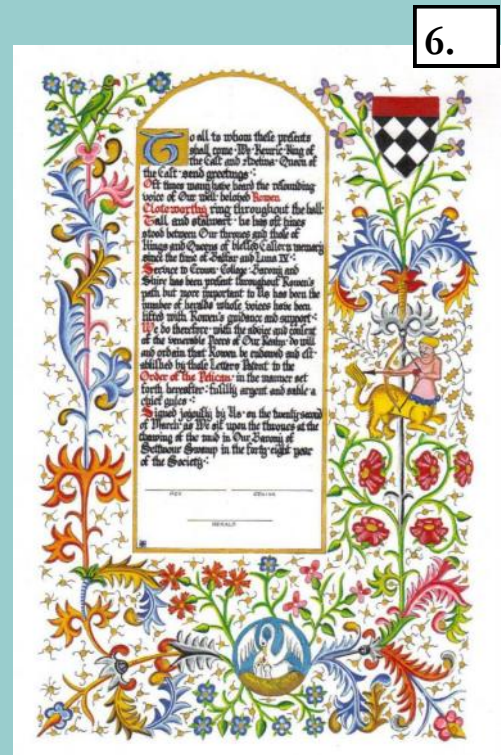 6.
To all to whom these presents
shall come · We Kenric King of
the East and Avelina Queen of
the East send greetings
Oft times many have heard the resounding
voice of Our well beloved Rowen
Cloteworthy ring throughout the hall
Tall and stalwart he has oft times
stood between Our thrones and those of
Kings and Queens of blessed Eastern memory
since the time of Balfar and Luna IV
Service to Crown College Barony and
Shire has been present throughout Rowen's
path but more important to Us has been the
number of heralds whose voices have been
lifted with Rowen's guidance and support
We do therefore with the advice and consent
of the venerable Peers of Our Realm do will
and ordain that Rowen be endowed and est
ablished by these Letters Patent to the
Order of the Pelican in the manner set
forth hereafter fusilly argent and sable a
chief gules
Signed joyously by Us on the twenty second
of March as We sit upon the thrones at the
thawing of the mud in Our Barony of
Settmour Swamp in the forty eight year
of the Society
REX REGINA
HERALD